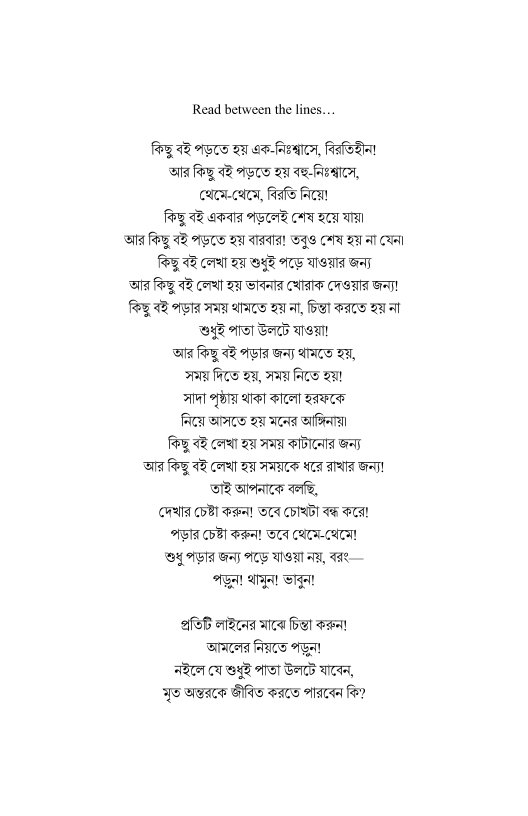 Read between the lines…
কিছু বই পড়তে হয় এক-নিঃশ্বাসে, বিরতিহীন!
আর কিছু বই পড়তে হয় বহু-নিঃশ্বাসে,
থেমে-থেমে, বিরতি নিয়ে!
কিছু বই একবার পড়লেই শেষ হয়ে যায়।
আর কিছু বই পড়তে হয় বারবার! তবুও শেষ হয় না যেন।
কিছু বই লেখা হয় শুধুই পড়ে যাওয়ার জন্য
আর কিছু বই লেখা হয় ভাবনার খোরাক দেওয়ার জন্য!
কিছু বই পড়ার সময় থামতে হয় না, চিন্তা করতে হয় না
শুধুই পাতা উলটে যাওয়া!
আর কিছু বই পড়ার জন্য থামতে হয়,
সময় দিতে হয়, সময় নিতে হয়!
সাদা পৃষ্ঠায় থাকা কালো হরফকে
নিয়ে আসতে হয় মনের আঙ্গিনায়।
কিছু বই লেখা হয় সময় কাটানোর জন্য
আর কিছু বই লেখা হয় সময়কে ধরে রাখার জন্য!
তাই আপনাকে বলছি,
দেখার চেষ্টা করুন! তবে চোখটা বন্ধ করে!
পড়ার চেষ্টা করুন! তবে থেমে-থেমে!
শুধু পড়ার জন্য পড়ে যাওয়া নয়, বরং—
পড়ুন! থামুন! ভাবুন!
প্রতিটি লাইনের মাঝে চিন্তা করুন!
আমলের নিয়তে পড়ুন!
নইলে যে শুধুই পাতা উলটে যাবেন,
মৃত অন্তরকে জীবিত করতে পারবেন কি?